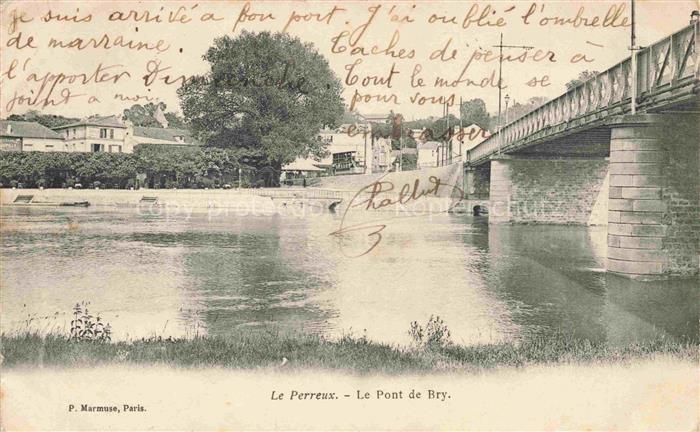 je suis arrivé à bon port. J'ai oublié l'ombrelle
de marraine. Taches de penser à
l'apporter Dimanche. Tout le monde se
joint à moi pour vous
embrasser.
copy protection Kopierschutz
Le Perreux. - Le Pont de Bry.
P. Marmuse, Paris.